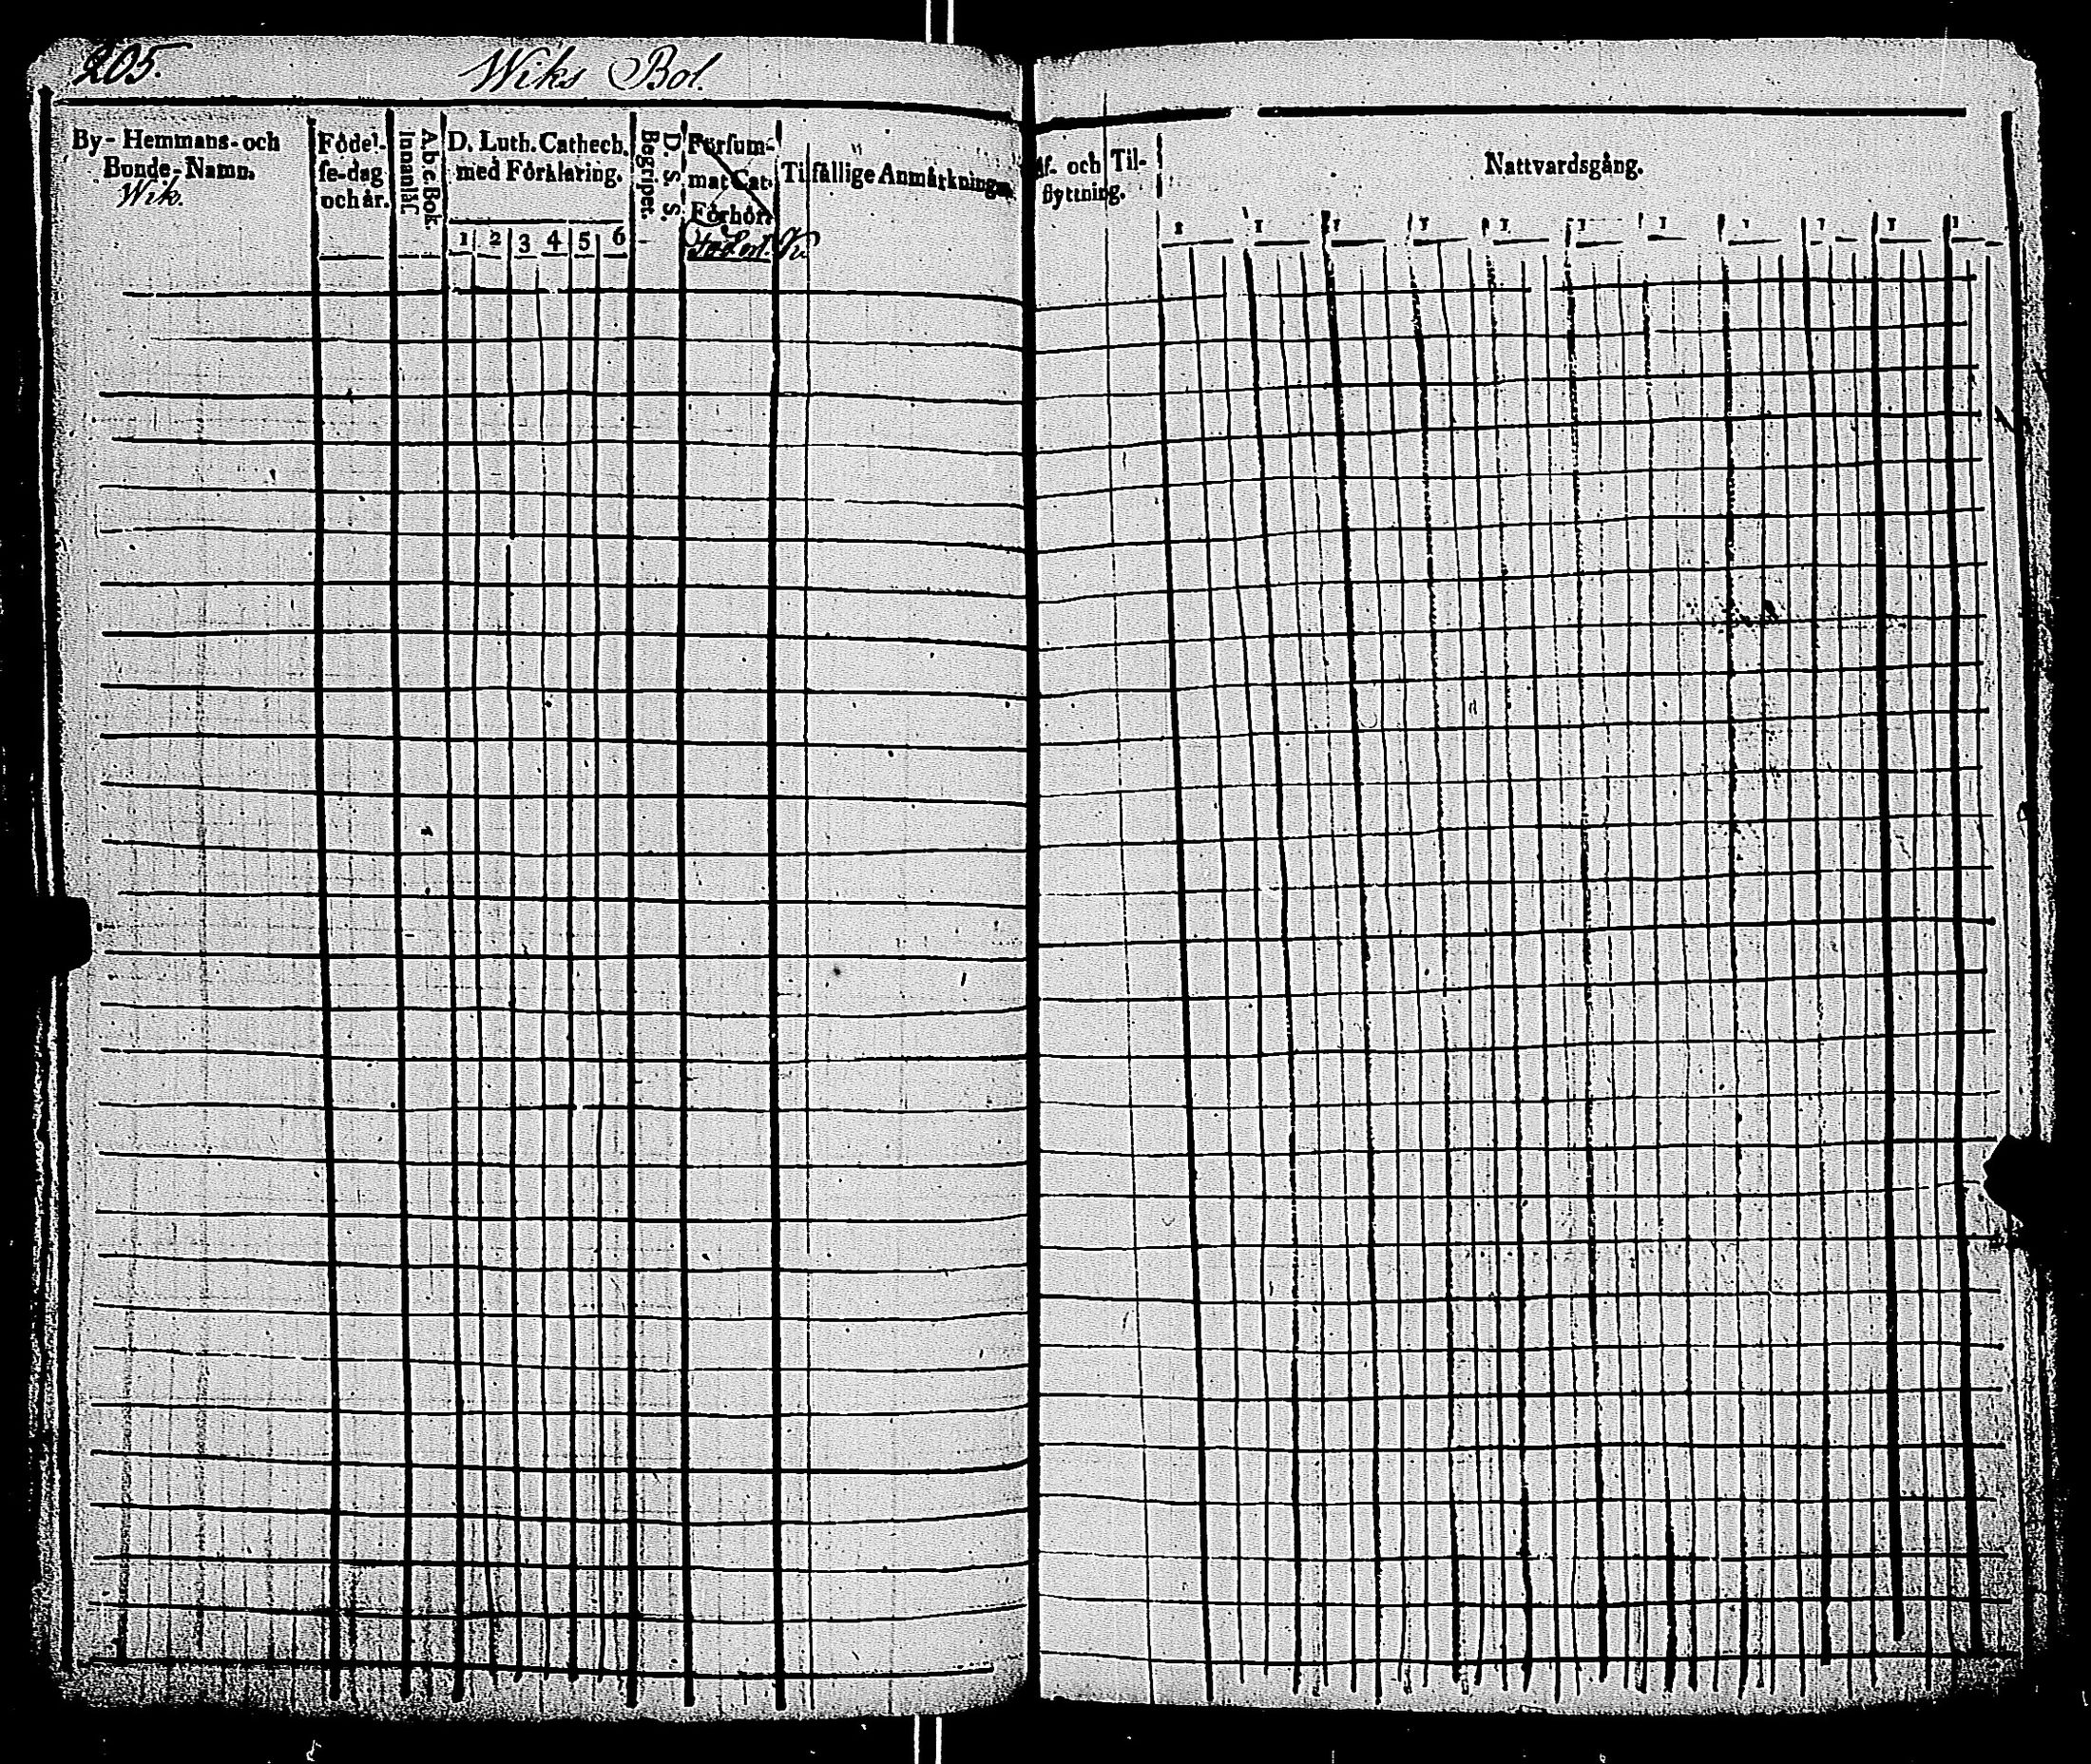 205.
Wiks Bol.
By- Hemmans- och
Bonde-Namn.
Wik.
Födel-
se-dag
och år.
A.b.c.Bok.
Innanläs.
D. Luth. Cathech.
med Förklaring.
1 2 3 4 5 6
D. S. S.
Begripet.
Försum-
mat Cat.
Förhör.
Tilfällige Anmärkningar
Af- och Til-
flyttning.
Nattvardsgång.
1 1 1 1 1 1 1 1 1 1 1